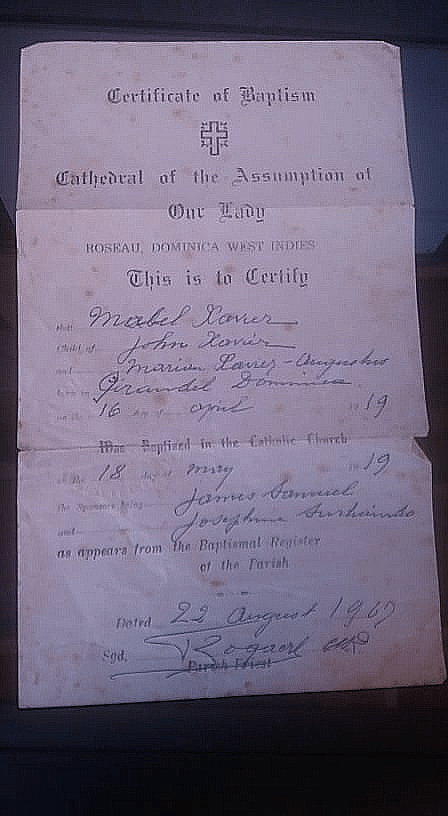 Certificate of Baptism
Cathedral of the Assumption of
Our Lady
ROSEAU, DOMINICA WEST INDIES
This is to Certify
that Mabel Xavier
Child of John Xavier
and Marian Xavier - Augustus
born in Giraudel Dominica
on the 16 day of April 1919
Was Baptized in the Catholic Church
on the 18 day of May 1919
the Sponsors being James Samuel
and Josephine
as appears from the Baptismal Register
of the Parish
Dated 22 August 1967
Sgd.
Parish Priest